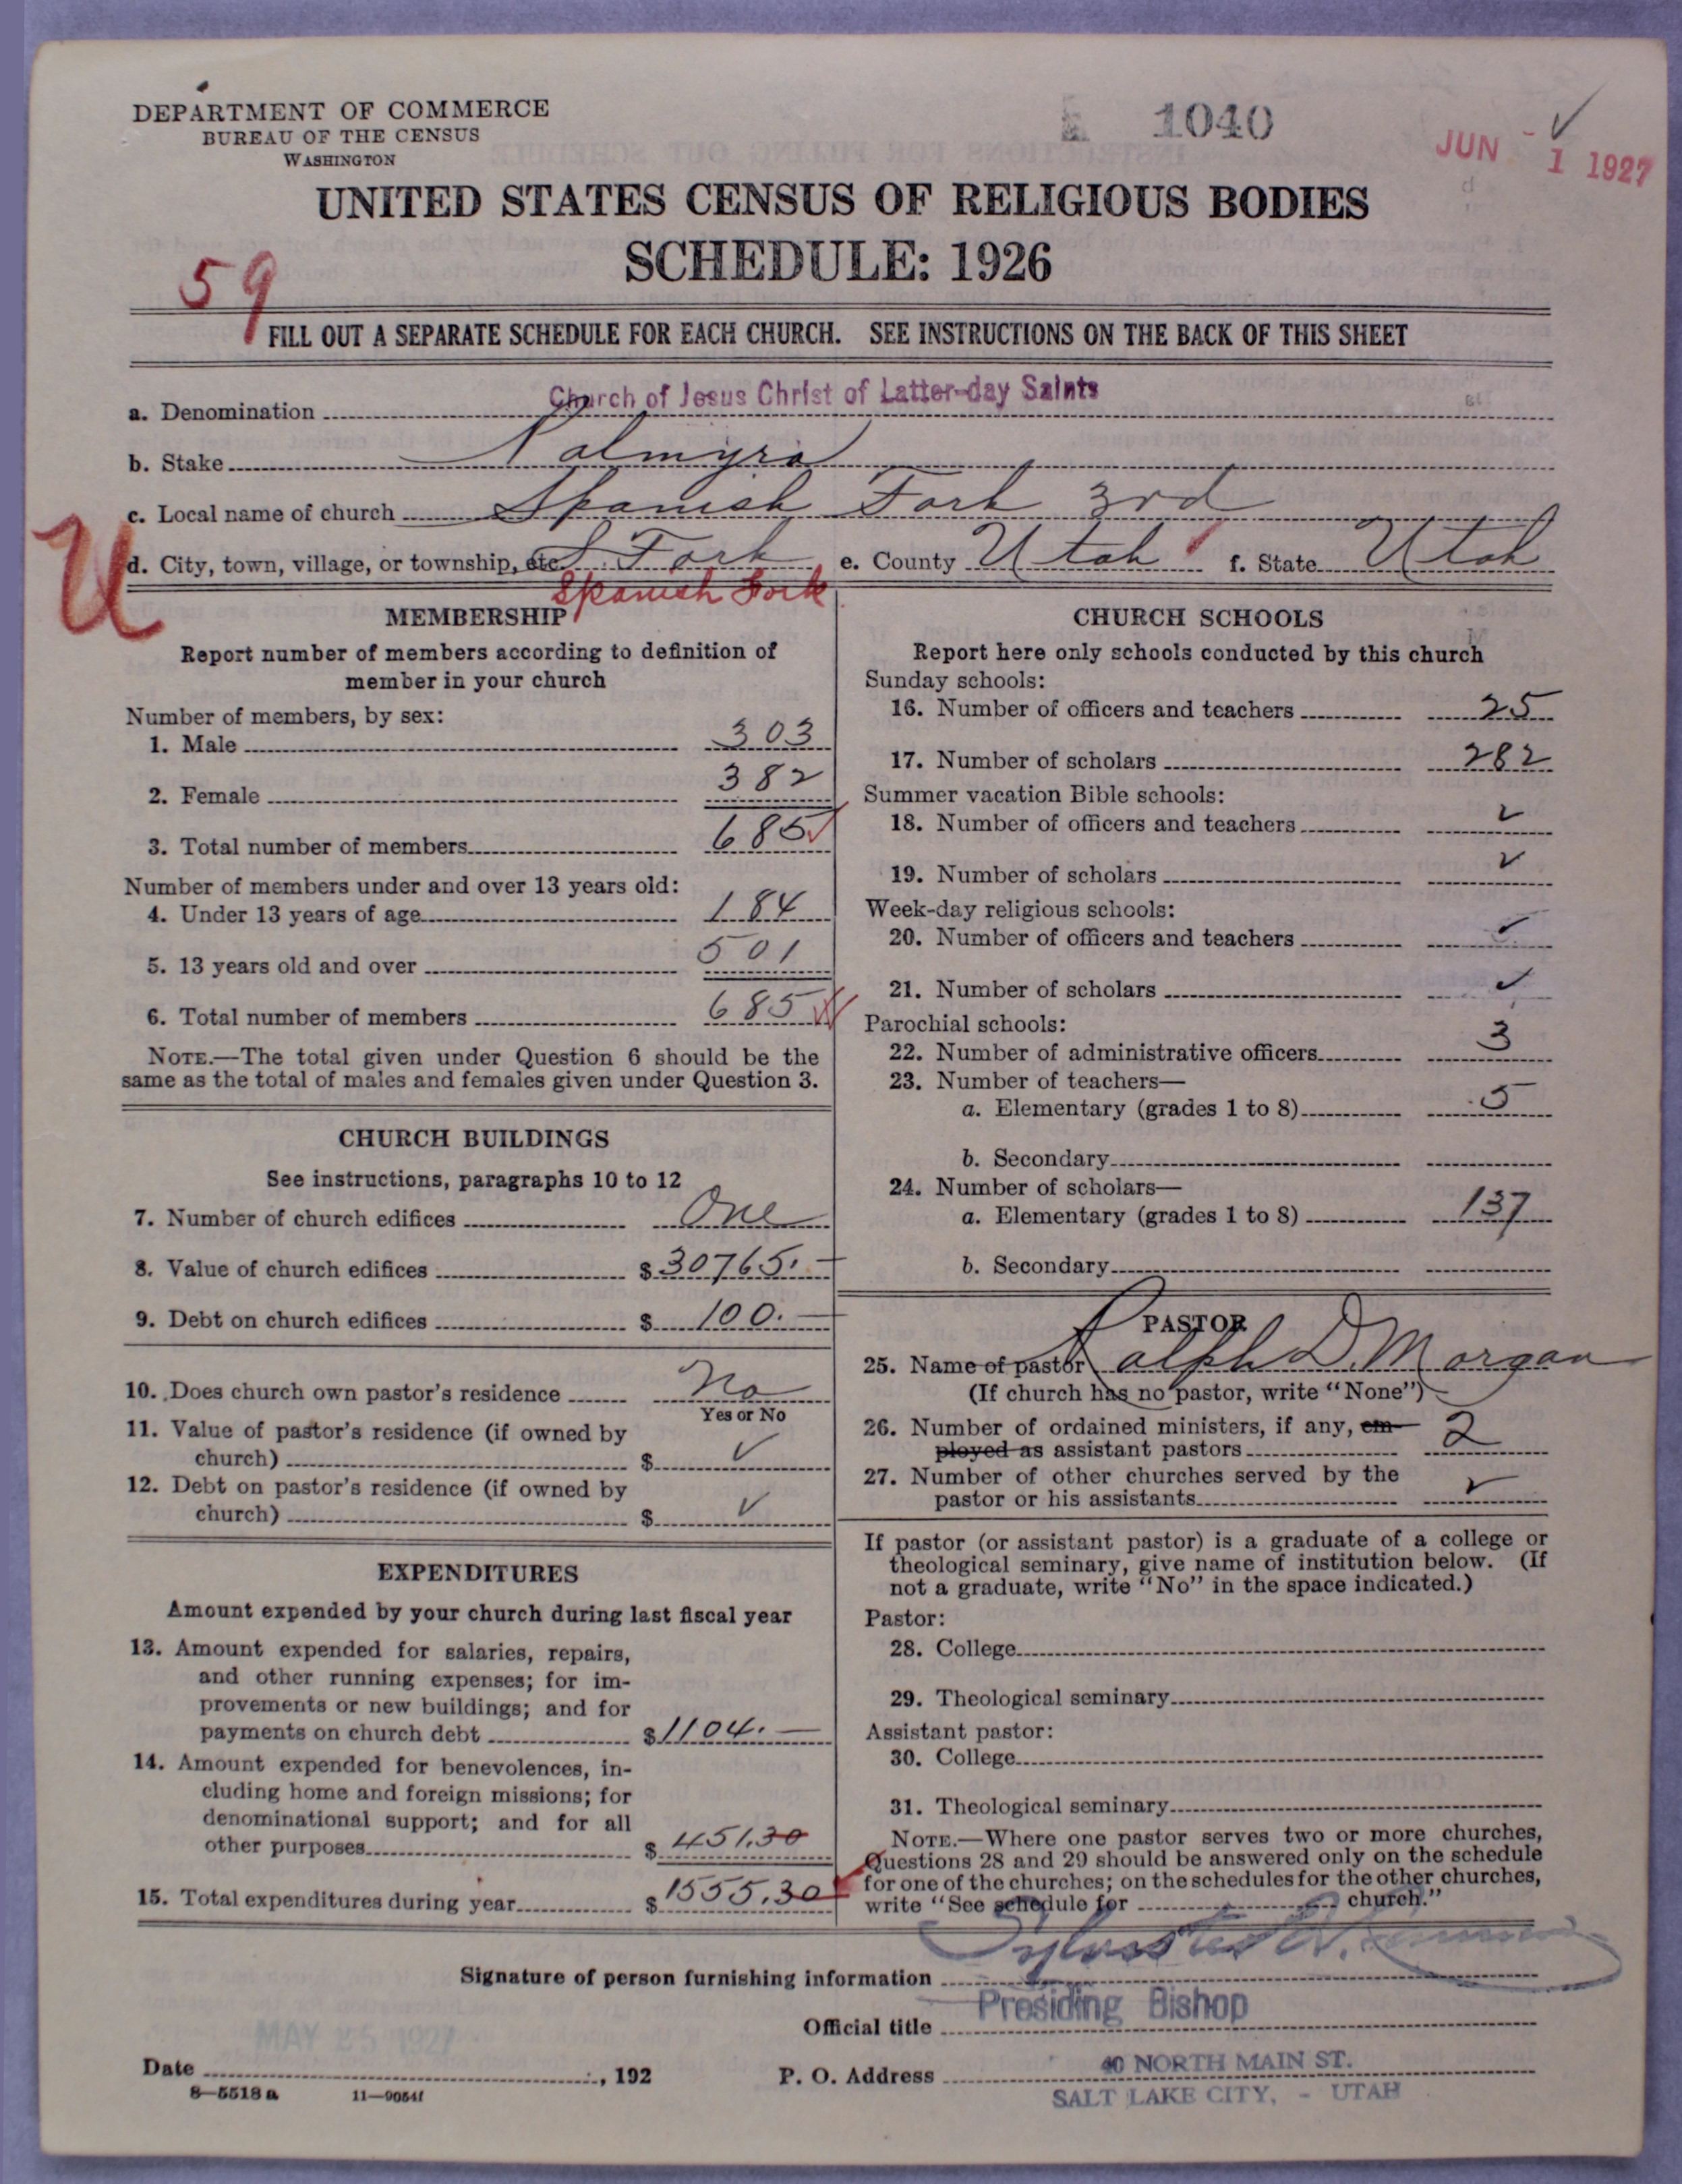 DEPARTMENT OF COMMERCE
BUREAU OF THE CENSUS
WASHINGTON
1040
JUN - 1 1927
UNITED STATES CENSUS OF RELIGIOUS BODIES
SCHEDULE: 1926
59
FILL OUT A SEPARATE SCHEDULE FOR EACH CHURCH. SEE INSTRUCTIONS ON THE BACK OF THIS SHEET
a. Denomination Church of Jesus Christ of Latter-day Saints
b. Stake Palmyra
c. Local name of church Spanish Fork 3rd
U
d. City, town, village, or township, etc. S. Fork e. County Utah f. State Utah
Spanish Fork
MEMBERSHIP
Report number of members according to definition of
member in your church
Number of members, by sex:
1. Male 303
2. Female 382
3. Total number of members 685
Number of members under and over 13 years old:
4. Under 13 years of age 184
5. 13 years old and over 501
6. Total number of members 685
NOTE.—The total given under Question 6 should be the
same as the total of males and females given under Question 3.
CHURCH BUILDINGS
See instructions, paragraphs 10 to 12
7. Number of church edifices One
8. Value of church edifices $ 30765.—
9. Debt on church edifices $ 100.—
10. Does church own pastor's residence No
Yes or No
11. Value of pastor's residence (if owned by
church) $ ✓
12. Debt on pastor's residence (if owned by
church) $ ✓
EXPENDITURES
Amount expended by your church during last fiscal year
13. Amount expended for salaries, repairs,
and other running expenses; for im-
provements or new buildings; and for
payments on church debt $ 1104.—
14. Amount expended for benevolences, in-
cluding home and foreign missions; for
denominational support; and for all
other purposes $ 451.30
15. Total expenditures during year $ 1555.30
CHURCH SCHOOLS
Report here only schools conducted by this church
Sunday schools:
16. Number of officers and teachers 25
17. Number of scholars 282
Summer vacation Bible schools:
18. Number of officers and teachers ✓
19. Number of scholars ✓
Week-day religious schools:
20. Number of officers and teachers ✓
21. Number of scholars ✓
Parochial schools:
22. Number of administrative officers 3
23. Number of teachers—
a. Elementary (grades 1 to 8) 5
b. Secondary
24. Number of scholars—
a. Elementary (grades 1 to 8) 137
b. Secondary
PASTOR
25. Name of pastor Ralph D. Morgan
(If church has no pastor, write "None")
26. Number of ordained ministers, if any, em-
ployed as assistant pastors 2
27. Number of other churches served by the
pastor or his assistants ✓
If pastor (or assistant pastor) is a graduate of a college or
theological seminary, give name of institution below. (If
not a graduate, write "No" in the space indicated.)
Pastor:
28. College
29. Theological seminary
Assistant pastor:
30. College
31. Theological seminary
NOTE.—Where one pastor serves two or more churches,
Questions 28 and 29 should be answered only on the schedule
for one of the churches; on the schedules for the other churches,
write "See schedule for church."
Signature of person furnishing information Sylvester Q.
Official title Presiding Bishop
MAY 25 1927
Date , 192
P. O. Address 40 NORTH MAIN ST.
SALT LAKE CITY, - UTAH
8—5518 a 11—9054f